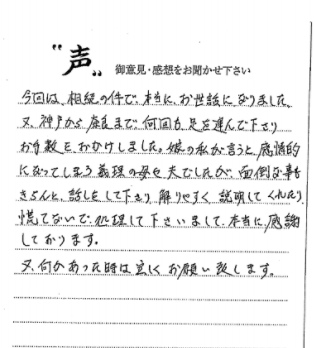 "声" 御意見・感想をお聞かせ下さい
今回は、相続の件で、本当に、お世話になりました。
又、神戸から奈良まで、何回も、足を運んで下さり
お手数を、おかけしました。嫁の私が言うと、感情的
になってしまう義理の母や夫でしたが、面倒な事も
きちんと、話しをして下さり 解りやすく 説明してくれたり、
慌てないで、処理して下さいまして、本当に感謝
しております。
又、何かあった時は 宜しく お願い致します。